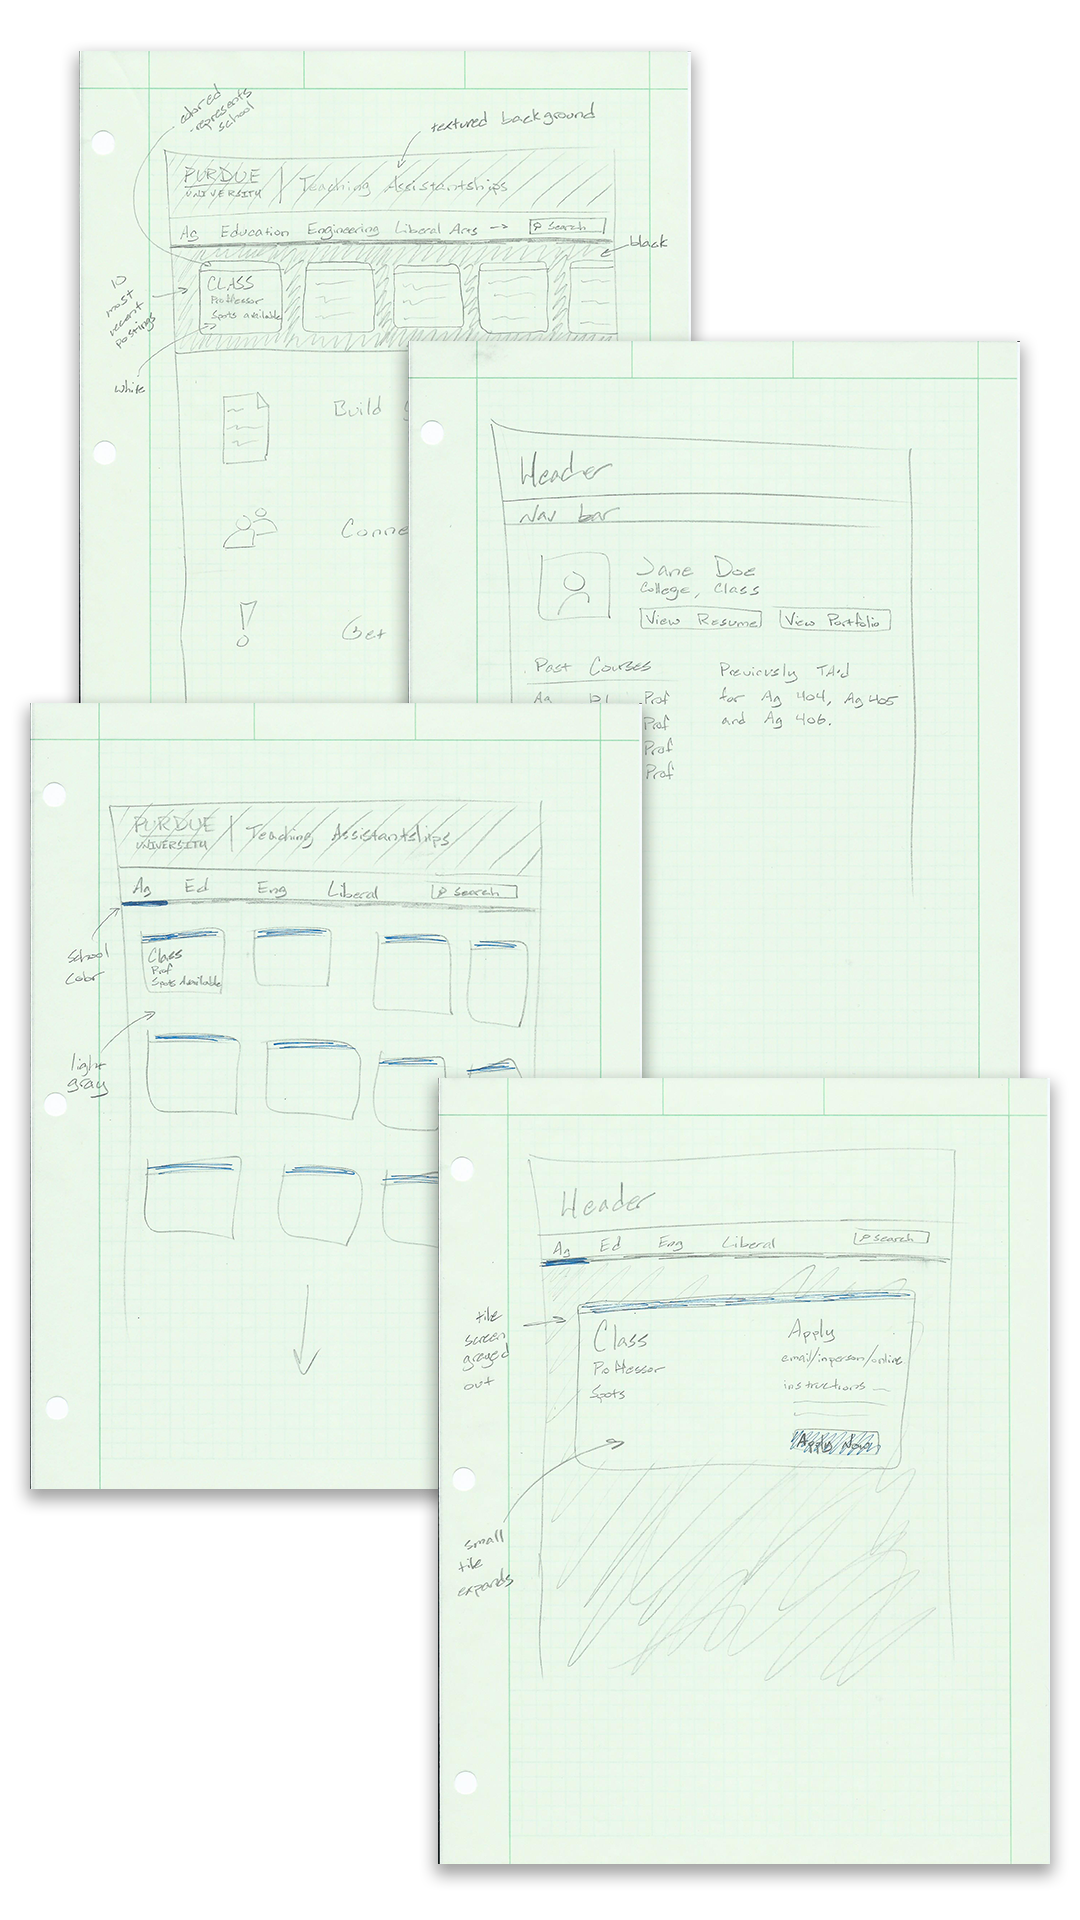 colored
represents
school
textured background
PURDUE
UNIVERSITY
Teaching Assistantships
Ag Education Engineering Liberal Arts → Search
black
10
most
recent
postings
CLASS
Proffessor
Spots available
white
Build
Conne
Get
Header
Nav bar
Jane Doe
College, Class
View Resume View Portfolio
Past Courses
Ag 101 Prof
Prof
Prof
Prof
Previously TA'd
for Ag 404, Ag 405
and Ag 406.
PURDUE
UNIVERSITY
Teaching Assistantships
Ag Ed Eng Liberal Search
school
color
Class
Prof
Spots Available
light
gray
Header
Ag Ed Eng Liberal Search
tile
screen
greyed
out
Class
Proffessor
Spots
Apply
email/inperson/online
instructions
Apply Now
small
tile
expands